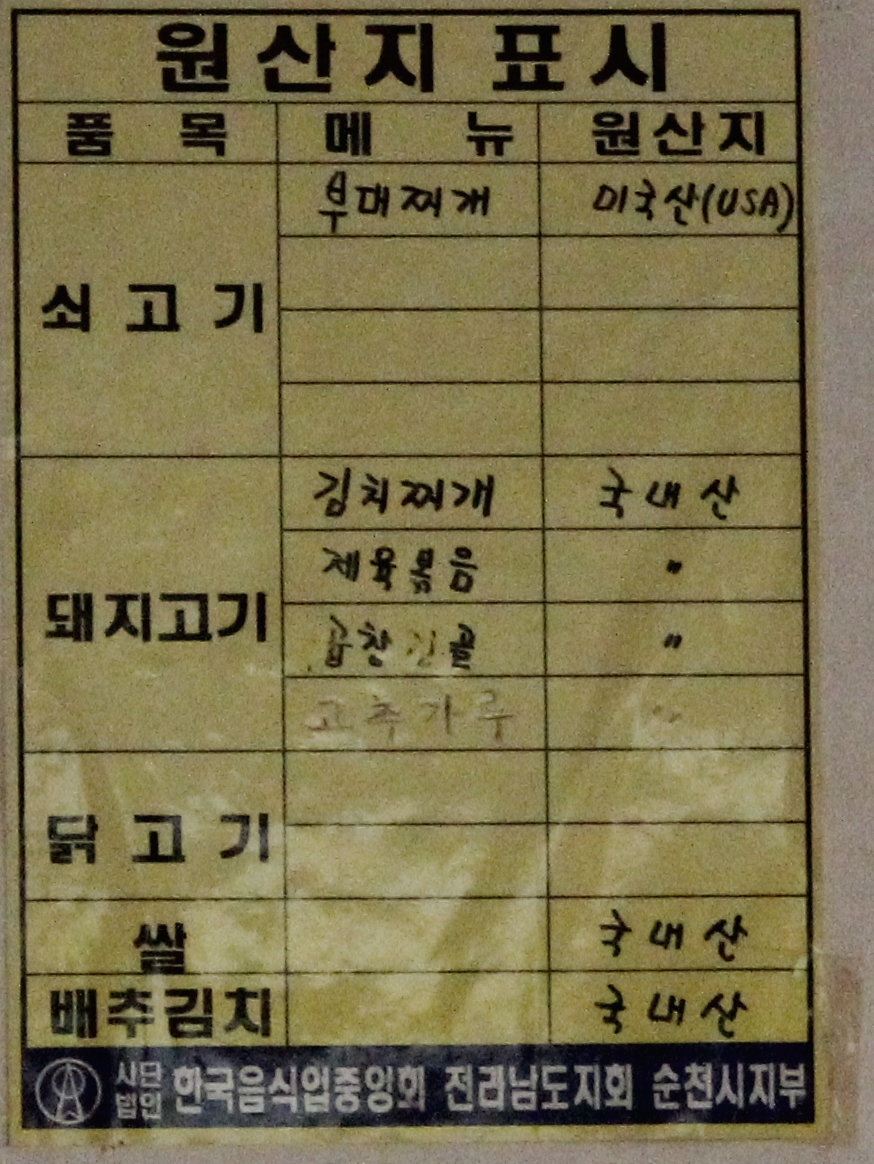 원산지 표시
품목 메뉴 원산지
쇠고기 부대찌개 미국산(USA)
돼지고기 김치찌개 국내산
제육볶음 〃
곱창전골 〃
고추가루 〃
닭고기
쌀 국내산
배추김치 국내산
사단법인 한국음식업중앙회 전라남도지회 순천시지부